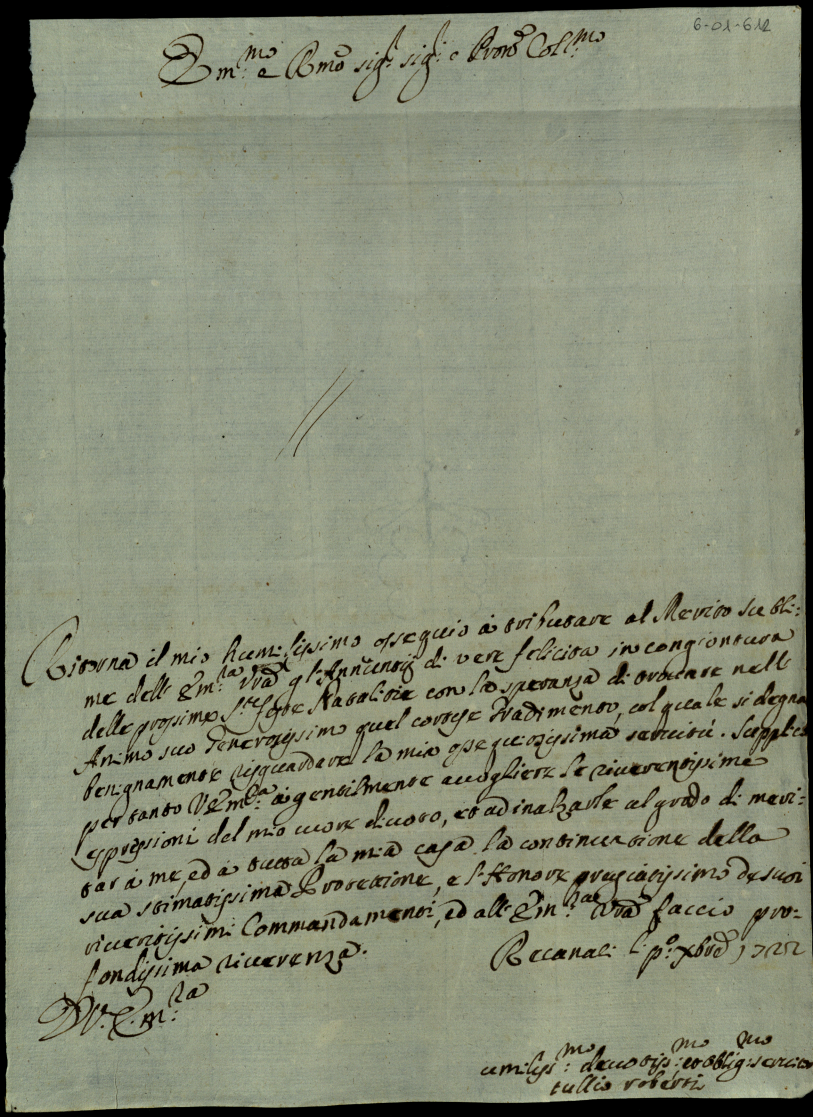 6-01-612
Em:mo e Rmo sig:r sig:r e Pron Col:mo
Ritorna il mio humilissimo ossequio à tributare al Merito subli:
me dell' Em:za Vra gl'Annuntij di vere felicità in congiontura
delle prossime S:te feste Natalitie con la speranza di trovare nell'
Animo suo Generosissimo quel cortese Gradimento, col quale si degna
benignamente risguardare la mia ossequiosissima servitù. Supplico
pertanto V.Em:za à gentilmente accogliere le riverentissime
espressioni del mio cuore divoto, et ad inalzarle al grado di meri:
tar à me, ed à tutta la mia casa la continuatione della
sua stimatissima Protettione, e l'Honore pregiatissimo de suoi
riveritissimi Commandamenti, ed all' Em:za Vra faccio pro:
fondissima riverenza.
Recanati li p:o Xbre 1722
D V. E.m:za
umiliss:mo devotiss:mo et oblig:mo servitor
tullio roberti